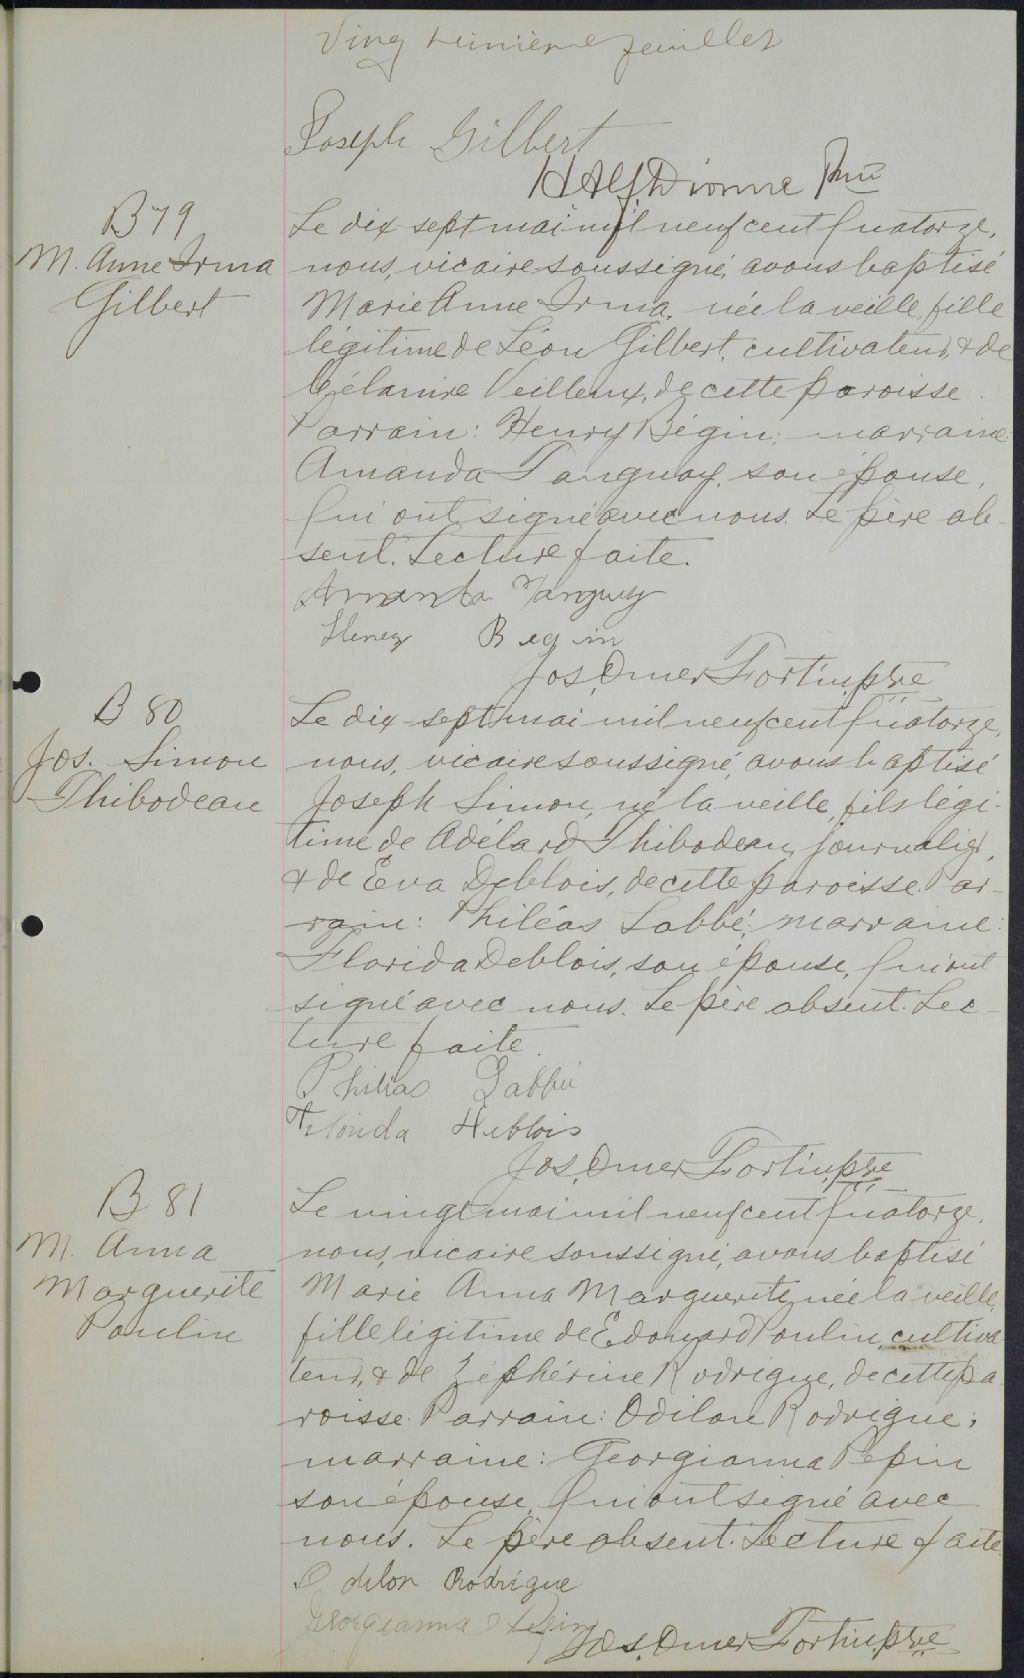 Vingt huitième feuillet
Joseph Gilbert
H Alf Dionne Ptre
B 79
M. Anne Irma
Gilbert
Le dix sept mai mil neuf cent quatorze,
nous, vicaire soussigné, avons baptisé
Marie Anne Irma, née la veille, fille
légitime de Léon Gilbert, cultivateur, & de
Célanire Veilleux, de cette paroisse.
Parrain: Henry Bégin; marraine:
Amanda Tanguay, son épouse,
qui ont signé avec nous. Le père ab-
sent. Lecture faite.
Amanda Tanguay
Henry Begin
Jos. Omer Fortin, ptre
B 80
Jos. Simon
Thibodeau
Le dix sept mai mil neuf cent quatorze,
nous, vicaire soussigné, avons baptisé
Joseph Simon, né la veille, fils légi-
time de Adélard Thibodeau, journalier,
& de Eva Deblois, de cette paroisse. Par-
rain: Philéas Labbé; marraine:
Florida Deblois, son épouse, qui ont
signé avec nous. Le père absent. Lec-
ture faite.
Philias Labbé
Florida Deblois
Jos. Omer Fortin, ptre
B 81
M. Anna
Marguerite
Poulin
Le vingt mai mil neuf cent quatorze,
nous, vicaire soussigné, avons baptisé
Marie Anna Marguerite, née la veille,
fille légitime de Edouard Poulin, cultiva
teur, & de Zéphérine Rodrigue, de cette pa
roisse. Parrain: Odilon Rodrigue;
marraine: Georgianna Pepin
son épouse, qui ont signé avec
nous. Le père absent. Lecture faite.
Odilon Rodrigue
Georgianna Pepin
Jos. Omer Fortin, ptre